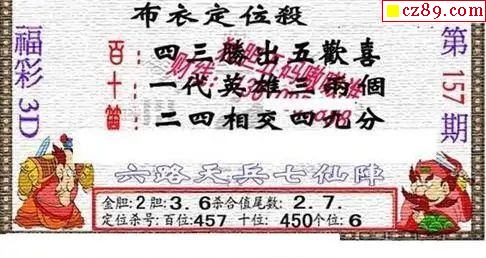 cz89.com
布衣定位殺
福彩3D
第157期
百:四三勝出五歡喜
十:一代英雄三兩個
笛:二四相交四九分
六路天兵七仙陣
金胆:2胆:3.6杀合值尾数:2.7.
定位杀号:百位:457 十位:450个位:6